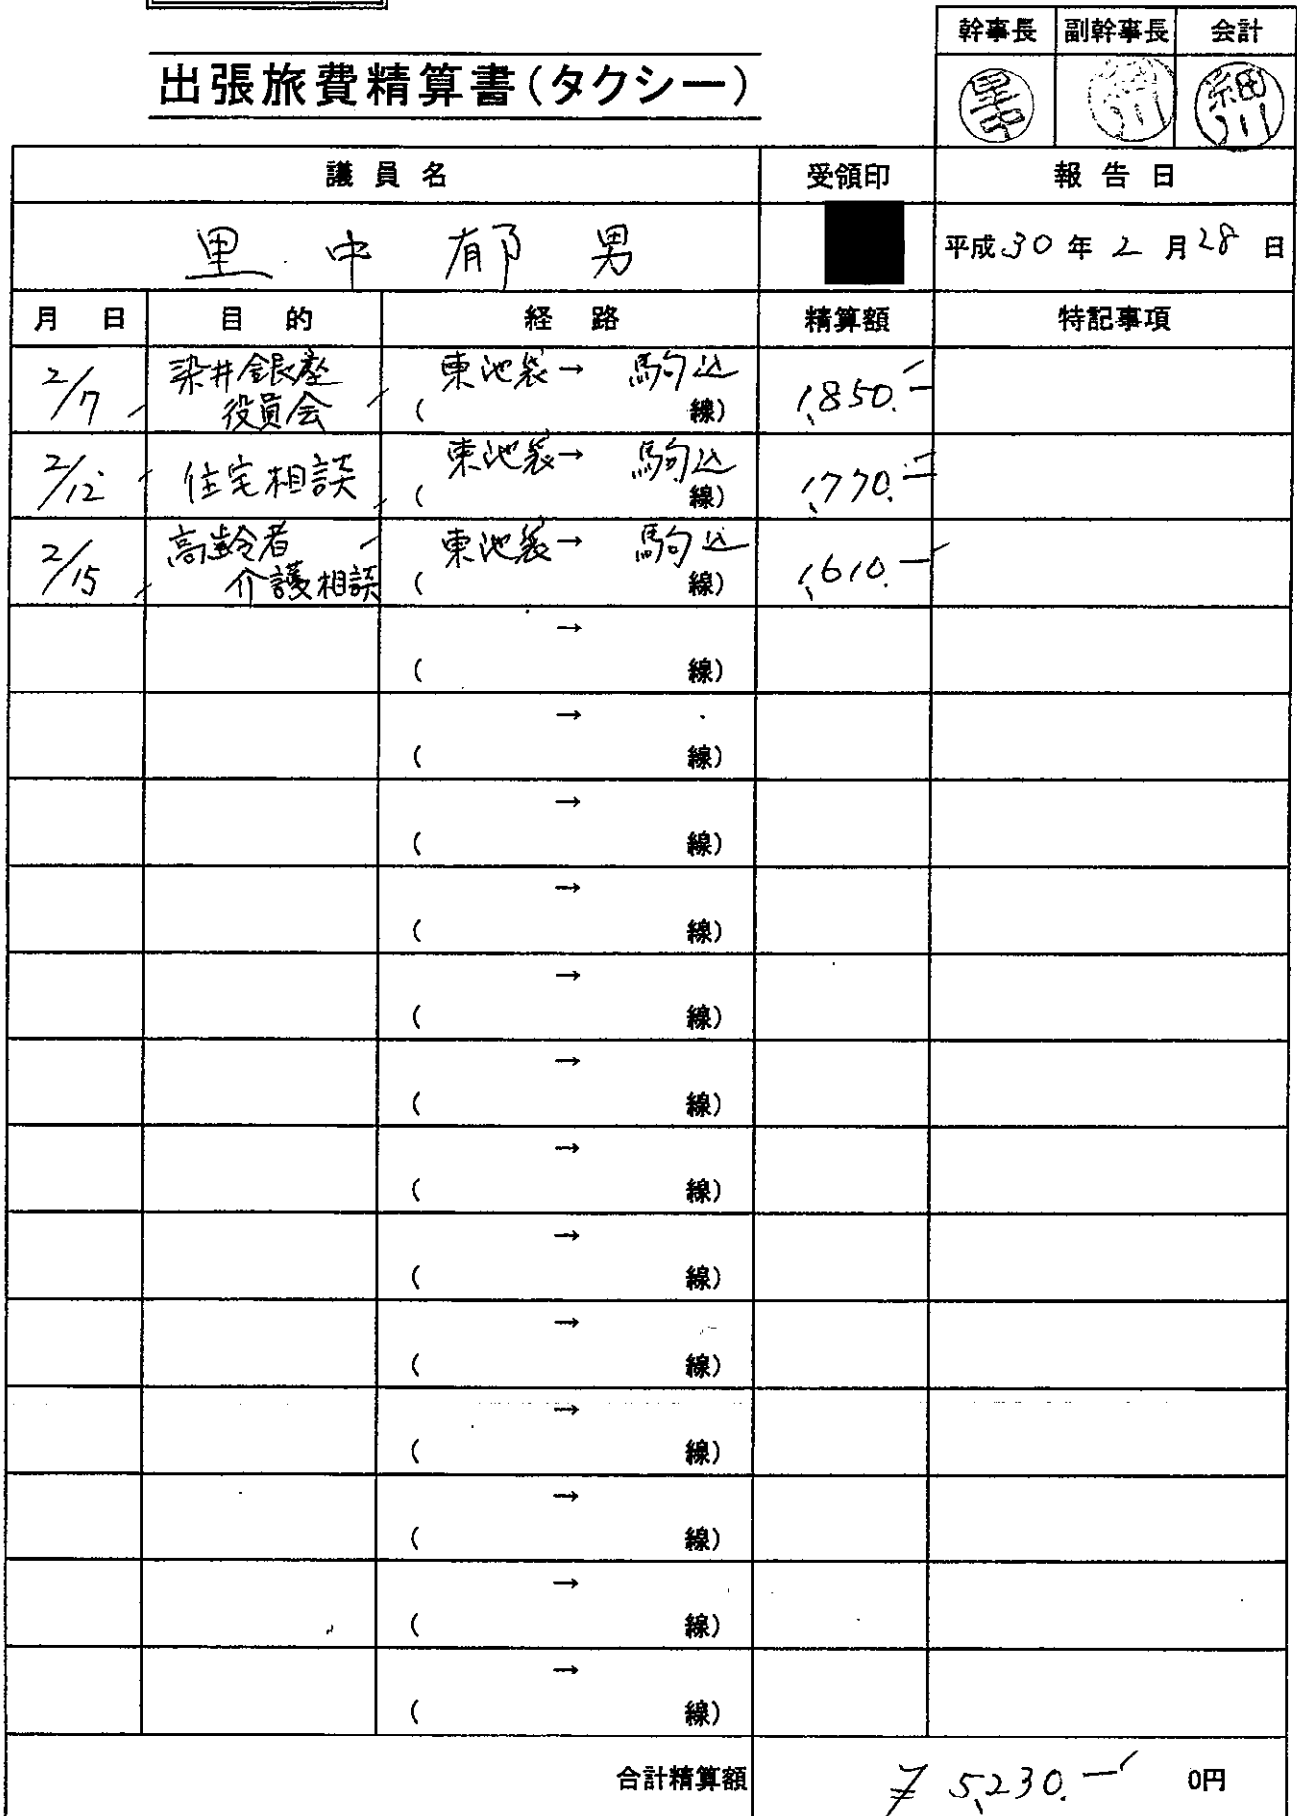 幹事長 副幹事長 会計
出張旅費精算書(タクシー)
里中 細川
議員名 受領印 報告日
里中郁男 平成30年2月28日
月日 目的 経路 精算額 特記事項
2/7 染井銀座 東池袋→駒込 1,850.-
役員会 ( 線)
2/12 住宅相談 東池袋→駒込 1,770.-
( 線)
2/15 高齢者 東池袋→駒込 1,610.-
介護相談 ( 線)
→
( 線)
→
( 線)
→
( 線)
→
( 線)
→
( 線)
→
( 線)
→
( 線)
→
( 線)
→
( 線)
→
( 線)
→
( 線)
→
( 線)
→
( 線)
合計精算額 ¥5,230.- 0円